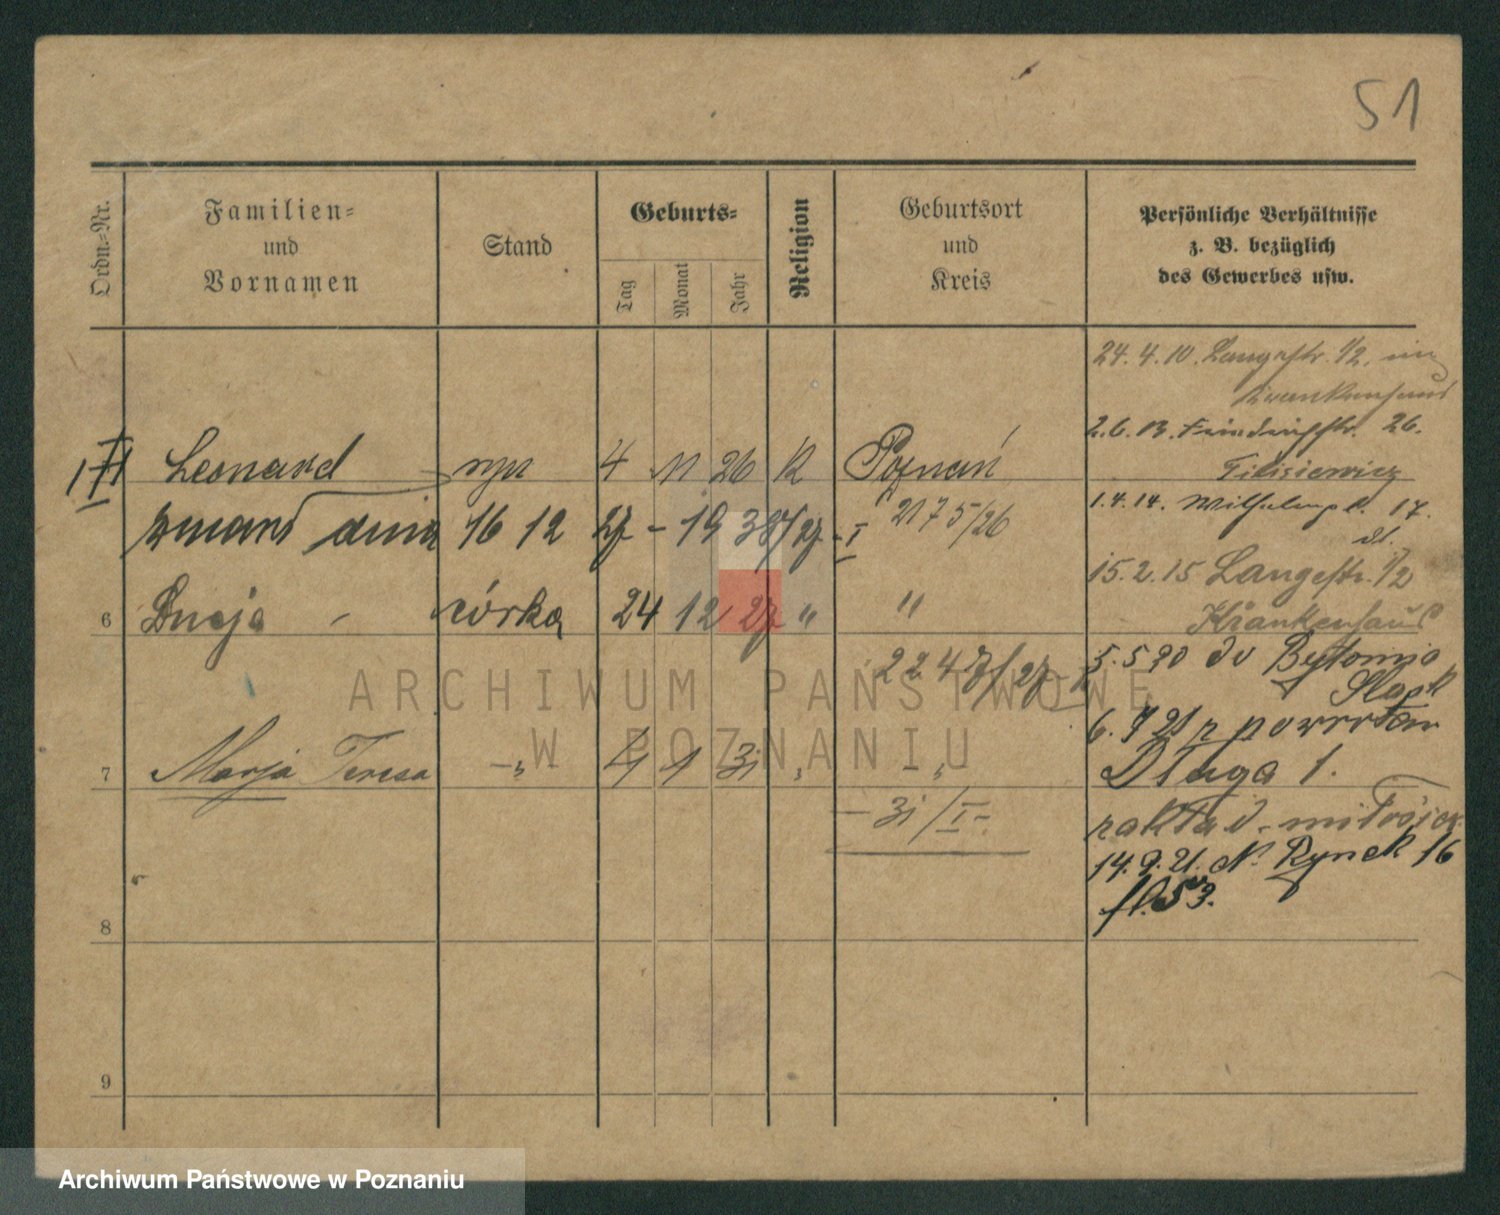 51
Ordn=Nr.
Familien=
und
Vornamen
Stand
Geburts=
Tag
Monat
Jahr
Religion
Geburtsort
und
Kreis
Persönliche Verhältnisse
z. B. bezüglich
des Gewerbes usw.
24.4.10. Langestr. 1/2. im
Krankenhaus
2.6.13. Friedrichstr. 26.
Leonard syn 4 11 26 K Poznań
1.4.14. Wilhelmpl. 17.
zmarł dnia 16 12 27 - 19 38/27 - I
2175/26
15.2.15 Langestr. 1/2
Krankenhaus
6 córka 24 12 27 " "
2247/27
5.5.20 do Bytomia
Śląsk
6.7 21 z powrotem
7 Marja Teresa -"- 4 1 31 " -"-
Długa 1.
- 31/I -
zakład
14.9.21. St. Rynek 16
fl. 53.
8
9
ARCHIWUM PAŃSTWOWE
W POZNANIU
Archiwum Państwowe w Poznaniu